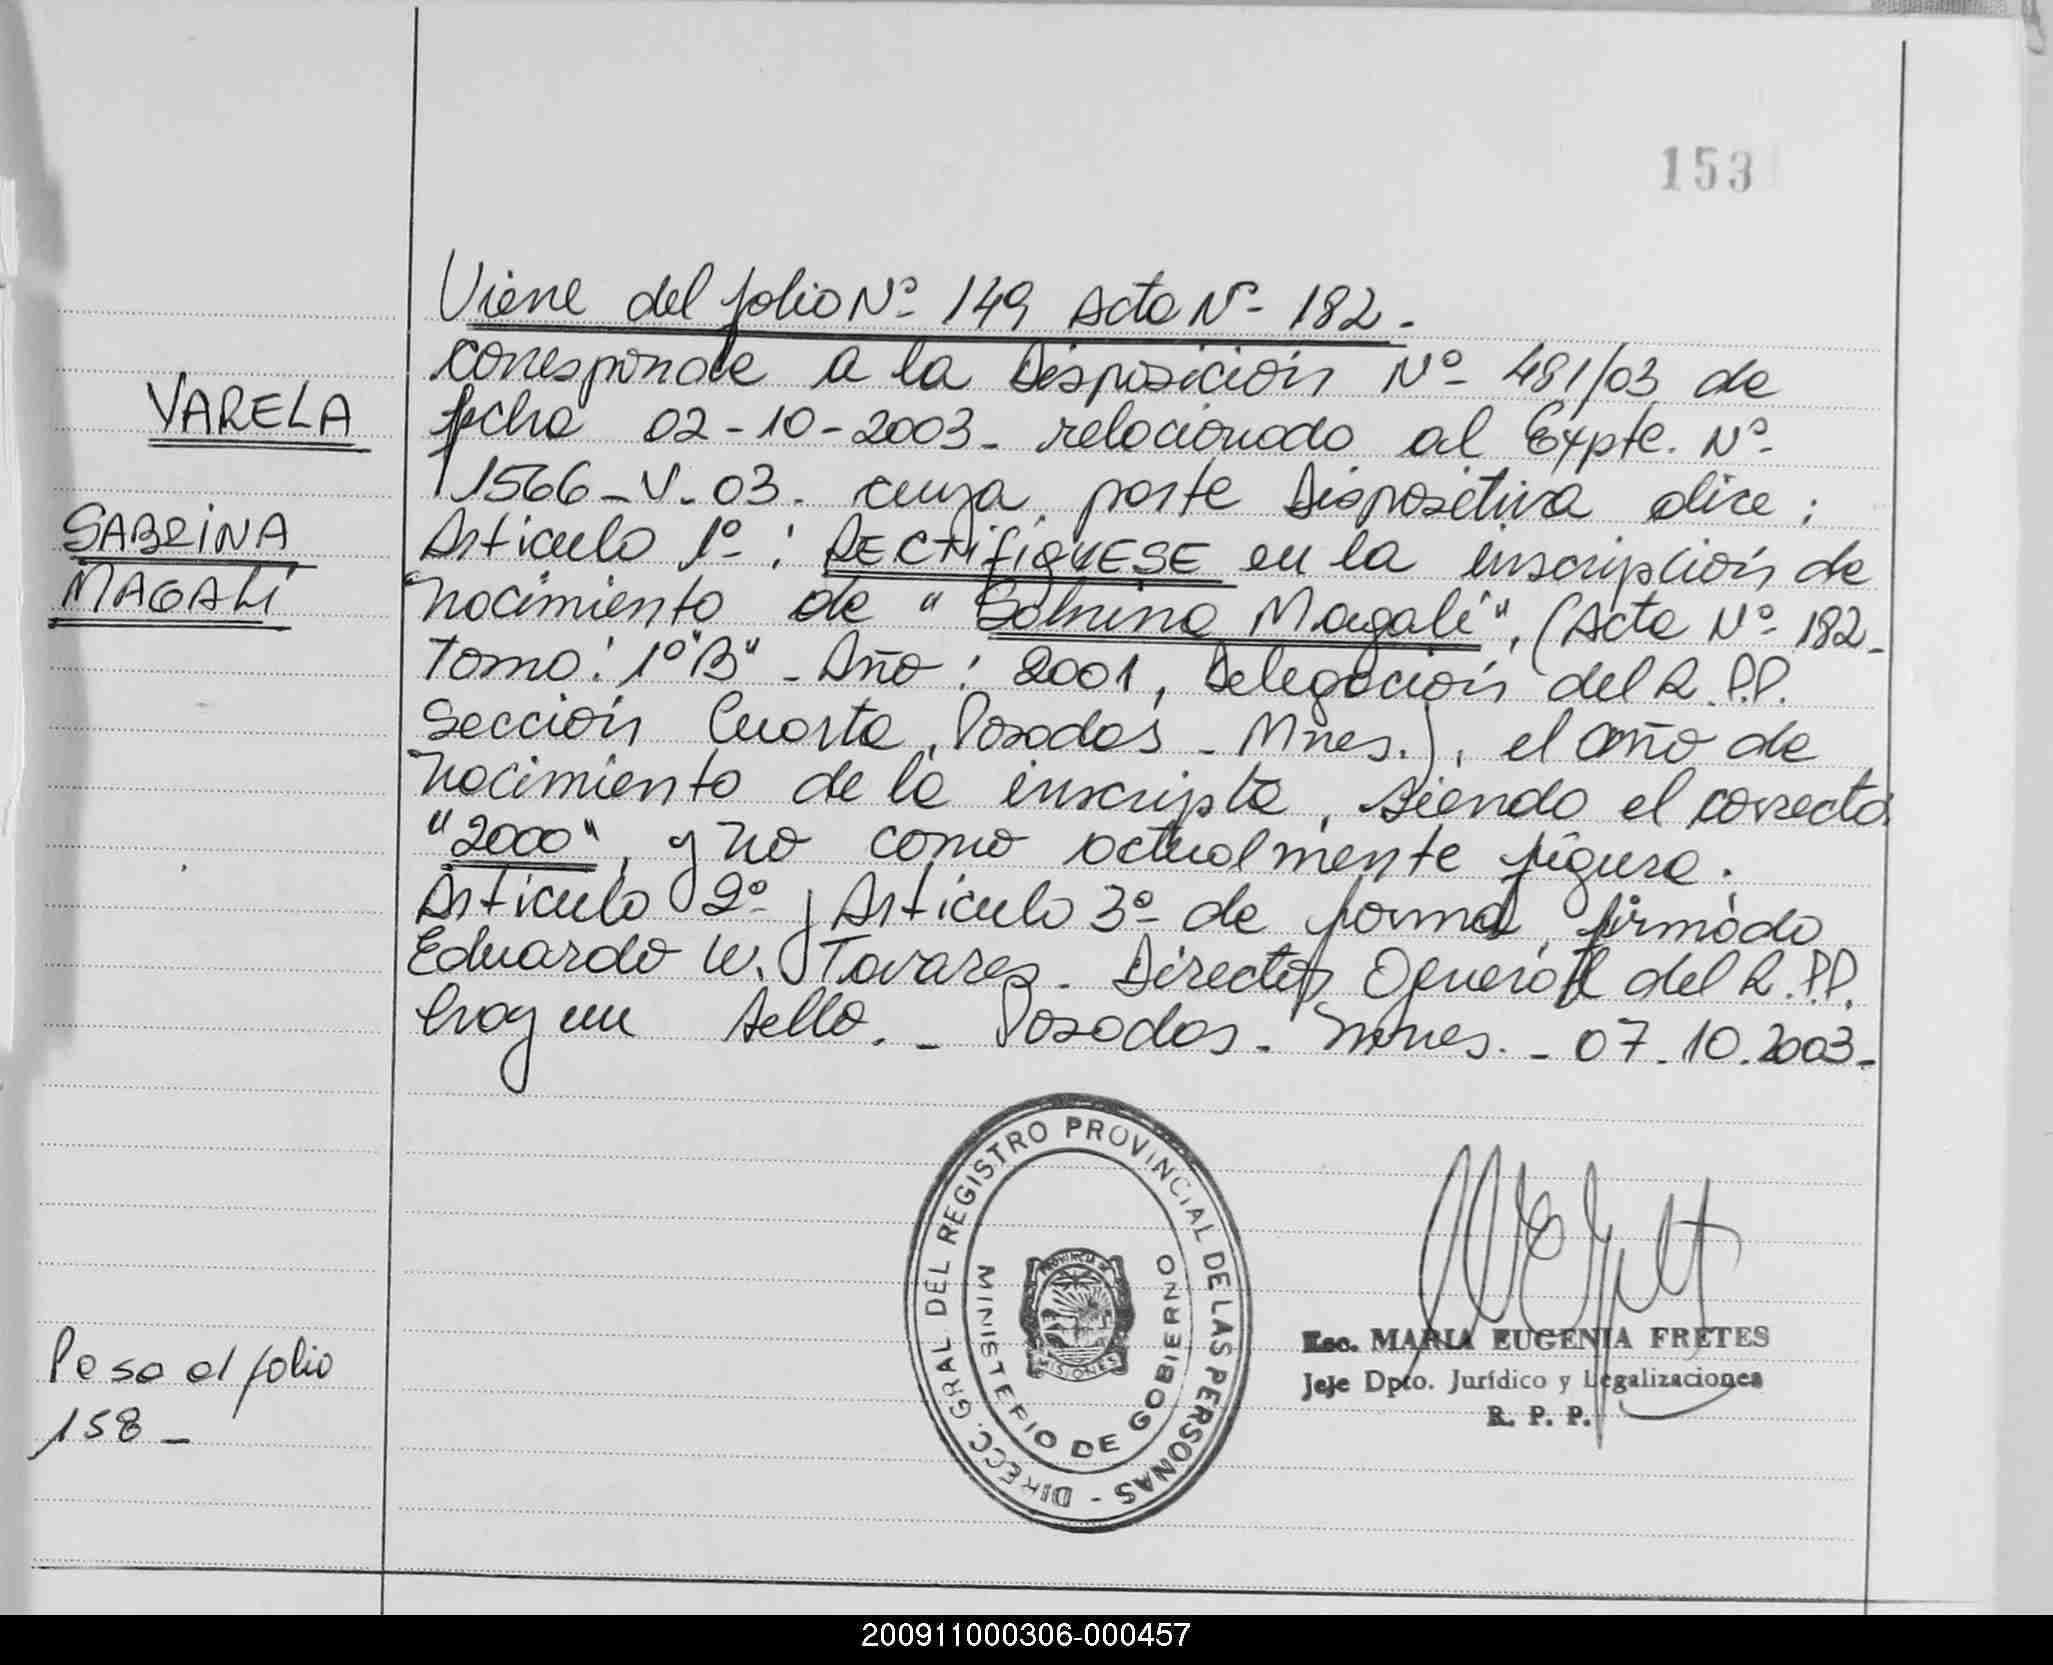 153
Viene del folio Nº 149 Acta Nº 182.
VARELA
SABRINA
MAGALÍ
corresponde a la Disposición Nº 481/03 de
fecha 02-10-2003. relacionado al Expte. Nº
11566-V-03. cuya parte Dispositiva dice:
Artículo 1º: RECTIFIQUESE en la inscripción de
nacimiento de "Sabrina Magalí", (Acta Nº 182-
Tomo: 1º "B" - Año: 2001, Delegación del R.P.P.
Sección Cuarta, Posadas - Mnes.), el año de
nacimiento de la inscripta, siendo el correcto
"2000", y no como actualmente figura.
Artículo 2º y Artículo 3º de forma, firmado
Eduardo W. Tavares. Director General del R.P.P.
hay un sello. - Posadas. Mnes. - 07.10.2003-
DIRECC. GRAL DEL REGISTRO PROVINCIAL DE LAS PERSONAS -
MINISTERIO DE GOBIERNO
PROVINCIA
MISIONES
Esc. MARIA EUGENIA FRETES
Jefe Dpto. Jurídico y Legalizaciones
R. P. P.
Pasa al folio
158-
200911000306-000457